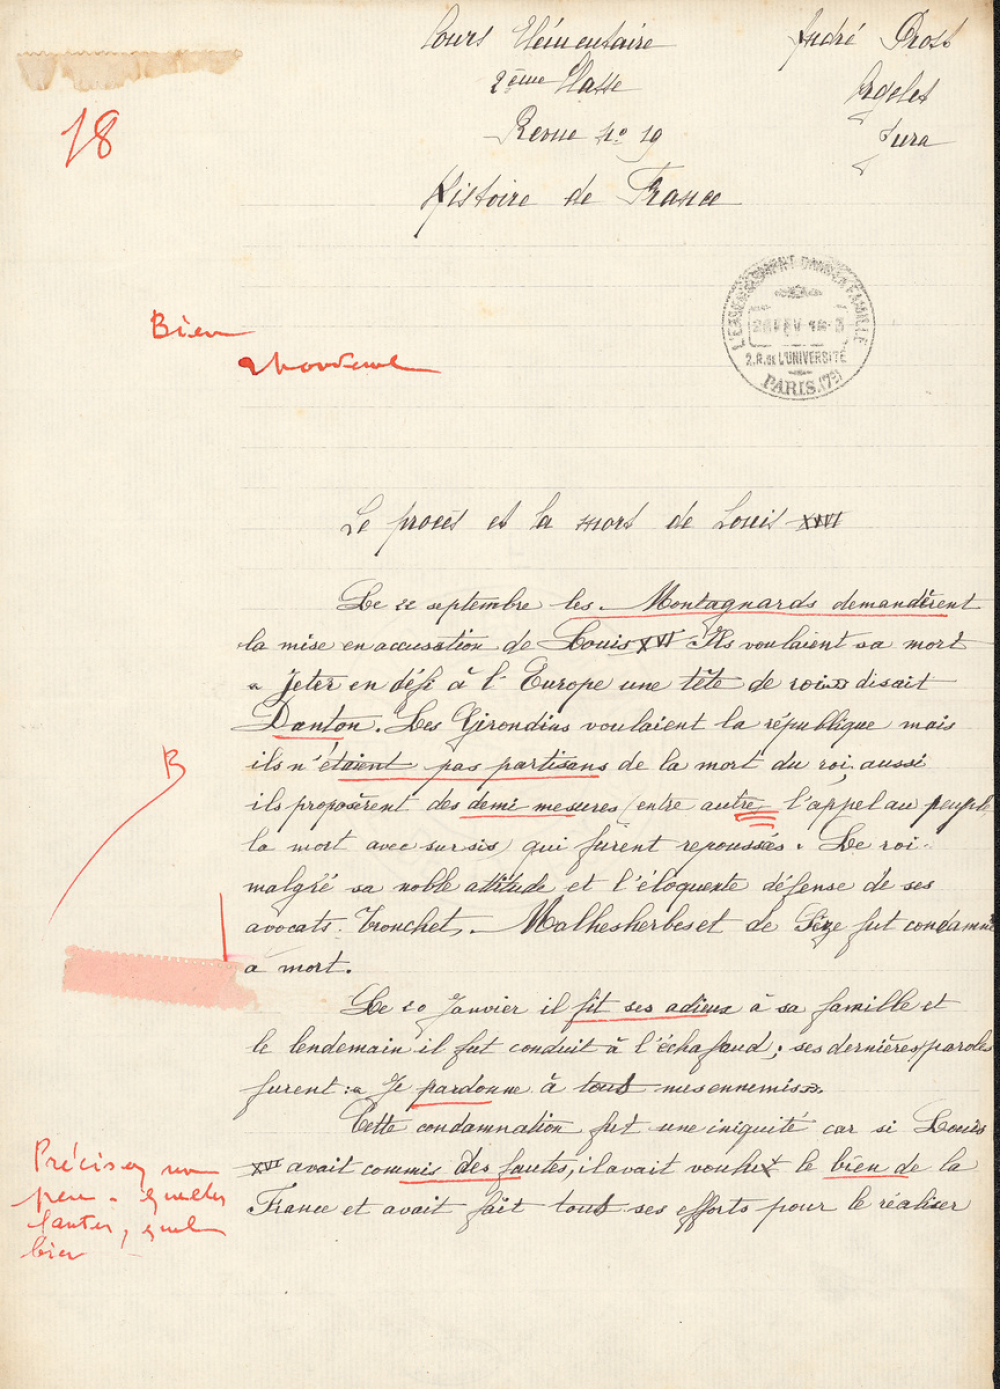 Cours Elémentaire
2ème Classe
Revue nº 19
André Prost
Orgelet
Jura
18
Histoire de France
L'ENSEIGNEMENT DANS LA FAMILLE
2. R. de L'UNIVERSITÉ
PARIS (7e)
Bien
Le procès et la mort de Louis XVI
Le 22 septembre les Montagnards demandèrent
la mise en accusation de Louis XVI Ils voulaient sa mort
« Jeter en défi à l'Europe une tête de roi » disait
Danton. Les Girondins voulaient la république mais
ils n'étaient pas partisans de la mort du roi, aussi
ils proposèrent des demi mesures (entre autre l'appel au peuple
la mort avec sursis) qui furent repoussés. Le roi
malgré sa noble attitude et l'éloquente défense de ses
avocats. Tronchet, Malhesherbes et de Sèze fut condamné
a mort.
B
Le 20 Janvier il fit ses adieux à sa famille et
le lendemain il fut conduit à l'échafaud; ses dernières paroles
furent : « Je pardonne à tout mes ennemis ».
Cette condamnation fut une iniquité car si Louis
XVI avait commis des fautes, il avait voulut le bien de la
France et avait fait tout ses efforts pour le réaliser
Précisez un
peu - quelles
fautes, quel
bien